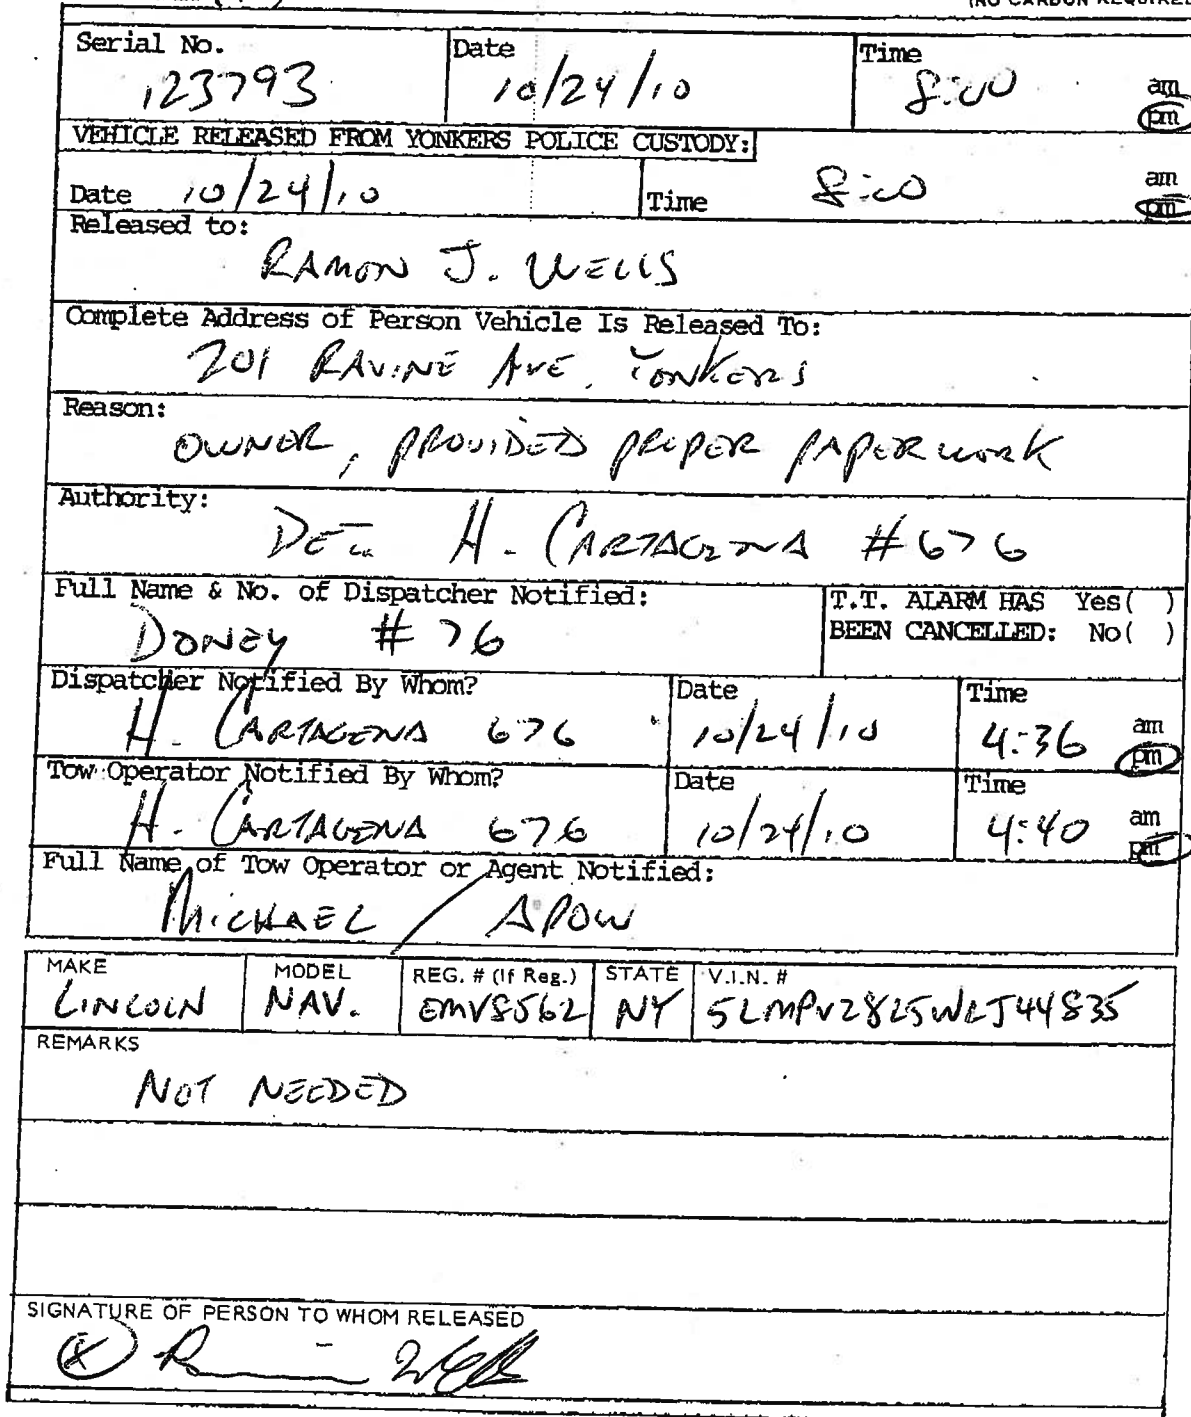 (NO CARBON REQUIRED
Serial No. Date Time
123793 10/24/10 8:00 am
pm
VEHICLE RELEASED FROM YONKERS POLICE CUSTODY:
Date 10/24/10 Time 8:00 am
pm
Released to:
RAMON J. WELLS
Complete Address of Person Vehicle Is Released To:
201 RAVINE AVE, YONKERS
Reason:
OWNER, PROVIDED PROPER PAPERWORK
Authority:
DET. H. CARTAGENA #676
Full Name & No. of Dispatcher Notified: T.T. ALARM HAS Yes( )
BEEN CANCELLED: No( )
DONEY #76
Dispatcher Notified By Whom? Date Time
H. CARTAGENA 676 10/24/10 4:36 am
pm
Tow Operator Notified By Whom? Date Time
H. CARTAGENA 676 10/24/10 4:40 am
pm
Full Name of Tow Operator or Agent Notified:
MICHAEL / APOW
MAKE MODEL REG. # (If Reg.) STATE V.I.N. #
LINCOLN NAV. EMV8562 NY 5LMPV28L5WLJ44835
REMARKS
NOT NEEDED
SIGNATURE OF PERSON TO WHOM RELEASED